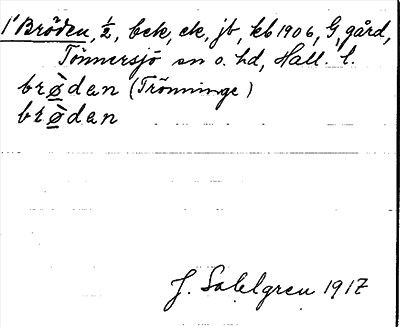 1' Bröden, ½, bek, ek, jb, kb 1906, G, gård,
Tönnersjö sn o. hd, Hall. l.
brø̀dan (Trönninge)
brø̀dan
J. Sahlgren 1917